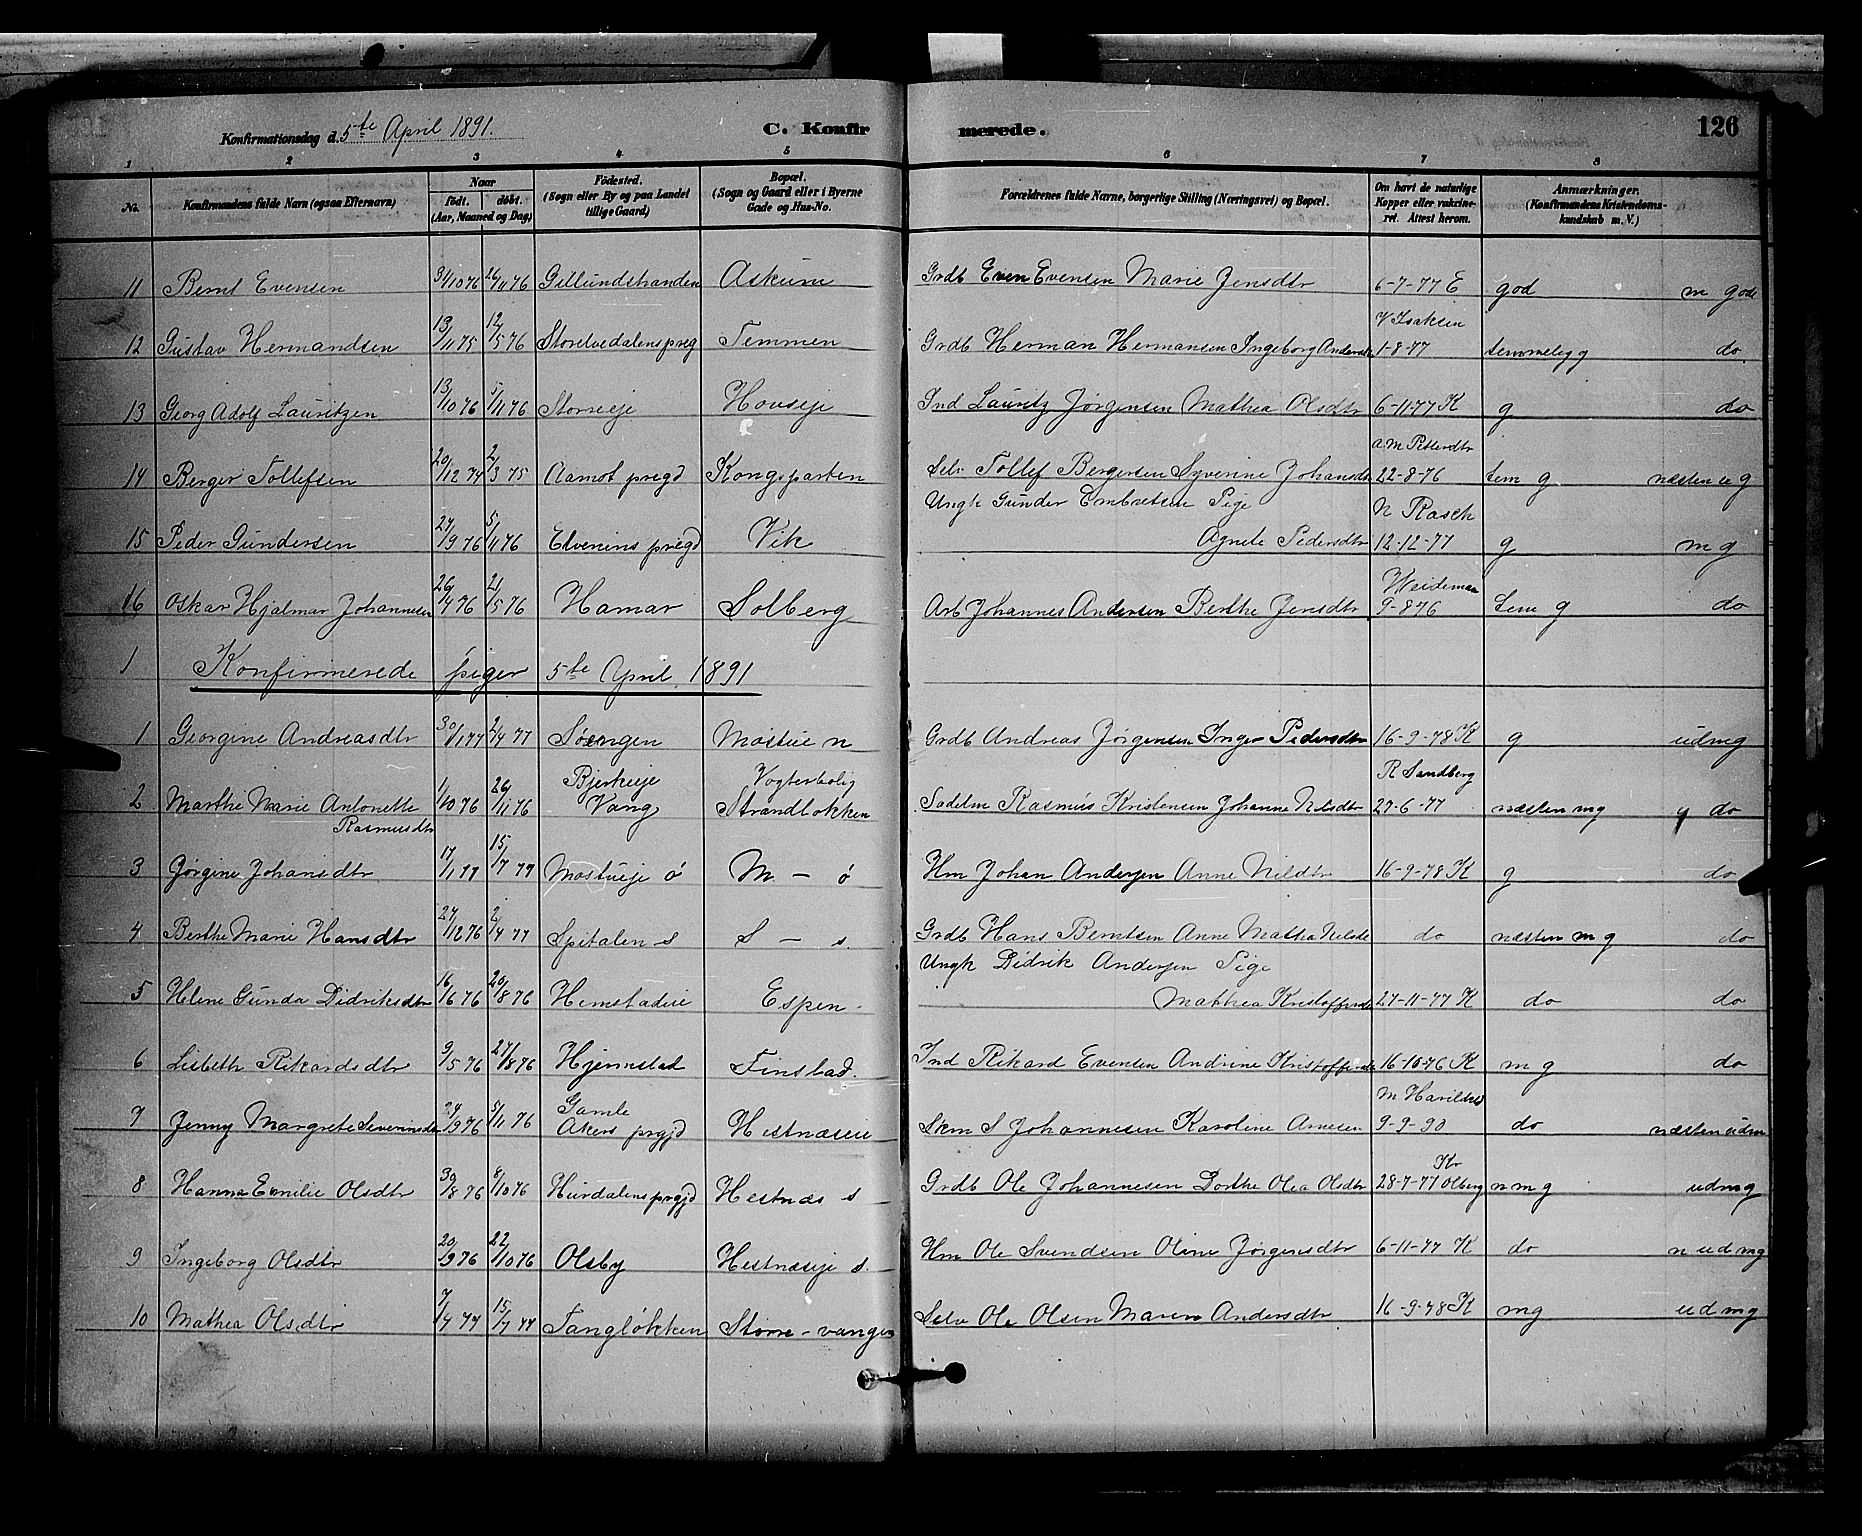 Konfirmationsdag d. 5te April 1891. C. Konfirmerede. 126
1 2 3 4 5 6 7 8
No. Konfirmandens fulde Navn (ogsaa Efternavn) Naar født. døbt. (Aar, Maaned og Dag) Fødested. (Sogn eller By og paa Landet tillige Gaard) Bopæl. (Sogn og Gaard eller i Byerne Gade og Hus-No. Forældrenes fulde Navne, borgerlige Stilling (Næringsvei) og Bopæl. Om havt de naturlige Kopper eller vakcineret. Attest herom. Anmærkninger. (Konfirmandens Kristendomskundskab m. V.)
11 Bernt Evensen 31/10 76 26/11 76 Gillundstranden Askum Grdb Even Evensen Marie Jensdtr 6-7-77 E god m god
12 Gustav Hermandsen 13/11 75 12/5 76 Storelvedalens preg Temmen Grdb Herman Hermansen Ingeborg Andersdtr V Isaksen 1-8-77 temmelig g do
13 Georg Adolf Lauritzen 13/10 76 5/11 76 Storreeje Houseje Ind Lauritz Jørgensen Mathea Olsdtr 6-11-77 K g do
14 Berger Tollefsen 20/12 74 2/3 75 Aamot pregd Kongsparten Selv Tollef Bergersen Syverine Johansdtr a m Pettersdtr 22-8-76 tem g næsten u g
15 Peder Gundersen 27/9 76 5/11 76 Elverums pregd Vik Ungk Gunder Embretsen Pige
Agnete Pedersdtr N Rasch 12-12-77 g m g
16 Oskar Hjalmar Johannesen 26/4 76 21/5 76 Hamar Solberg Arb Johannes Andersen Berthe Jensdtr Heideman 9-8-76 tem g do
1 Konfirmerede piger 5te April 1891
1 Georgine Andreasdtr 30/1 77 2/4 77 Sørengen Mostue n Grdb Andreas Jørgensen Inger Pedersdtr 16-9-78 K g udmg
2 Marthe Marie Antonette Rasmusdtr 1/10 76 26/11 76 Bjerkeje Vang Vogterbolig Strandløkken Sadelm Rasmus Kristensen Johanne Nilsdtr R Sandberg 27-6-77 næsten m g do
3 Jørgine Johansdtr 17/1 77 15/7 77 Mostueje ø M - ø Hm Johan Andersen Anne Nilsdtr 16-9-78 K g do
4 Berthe Marie Hansdtr 27/12 76 2/4 77 Spitalen s S - s Grdb Hans Berntsen Anne Mathea Nilsdtr do næsten m g do
5 Helene Gunda Didriksdtr 16/6 76 20/8 76 Hemstadeie Espen Ungk Didrik Andersen Pige
Mathea Kristoffersdtr 27-11-77 K do do
6 Lisbeth Rikardsdtr 9/5 76 27/8 76 Hjemstad Finstad. Ind Rikard Evensen Andrine Kristoffersdtr 16-10-76 K m g do
7 Jenny Margrete Severinsdtr 24/9 76 5/11 76 Gamle Akers prgjd Hestnæseie Skm S Johannesen Karoline Arnesen 9-9-90 do næsten udm
8 Hanna Emilie Olsdtr 30/8 76 8/10 76 Hurdalens prgjd Hestnæs s Grdb Ole Johannesen Dorthe Olea Olsdtr 28-7-77 Kr Olberg n m g udmg
9 Ingeborg Olsdtr 20/9 76 22/10 76 Olsby Hestnæseje s. Hm Ole Svendsen Oline Jørgensdtr 6-11-77 K do n udmg
10 Mathea Olsdtr 7/4 77 15/7 77 Tangløkken Storre-vangen Selv Ole Olsen Maren Andersdtr 16-9-78 K mg udmg